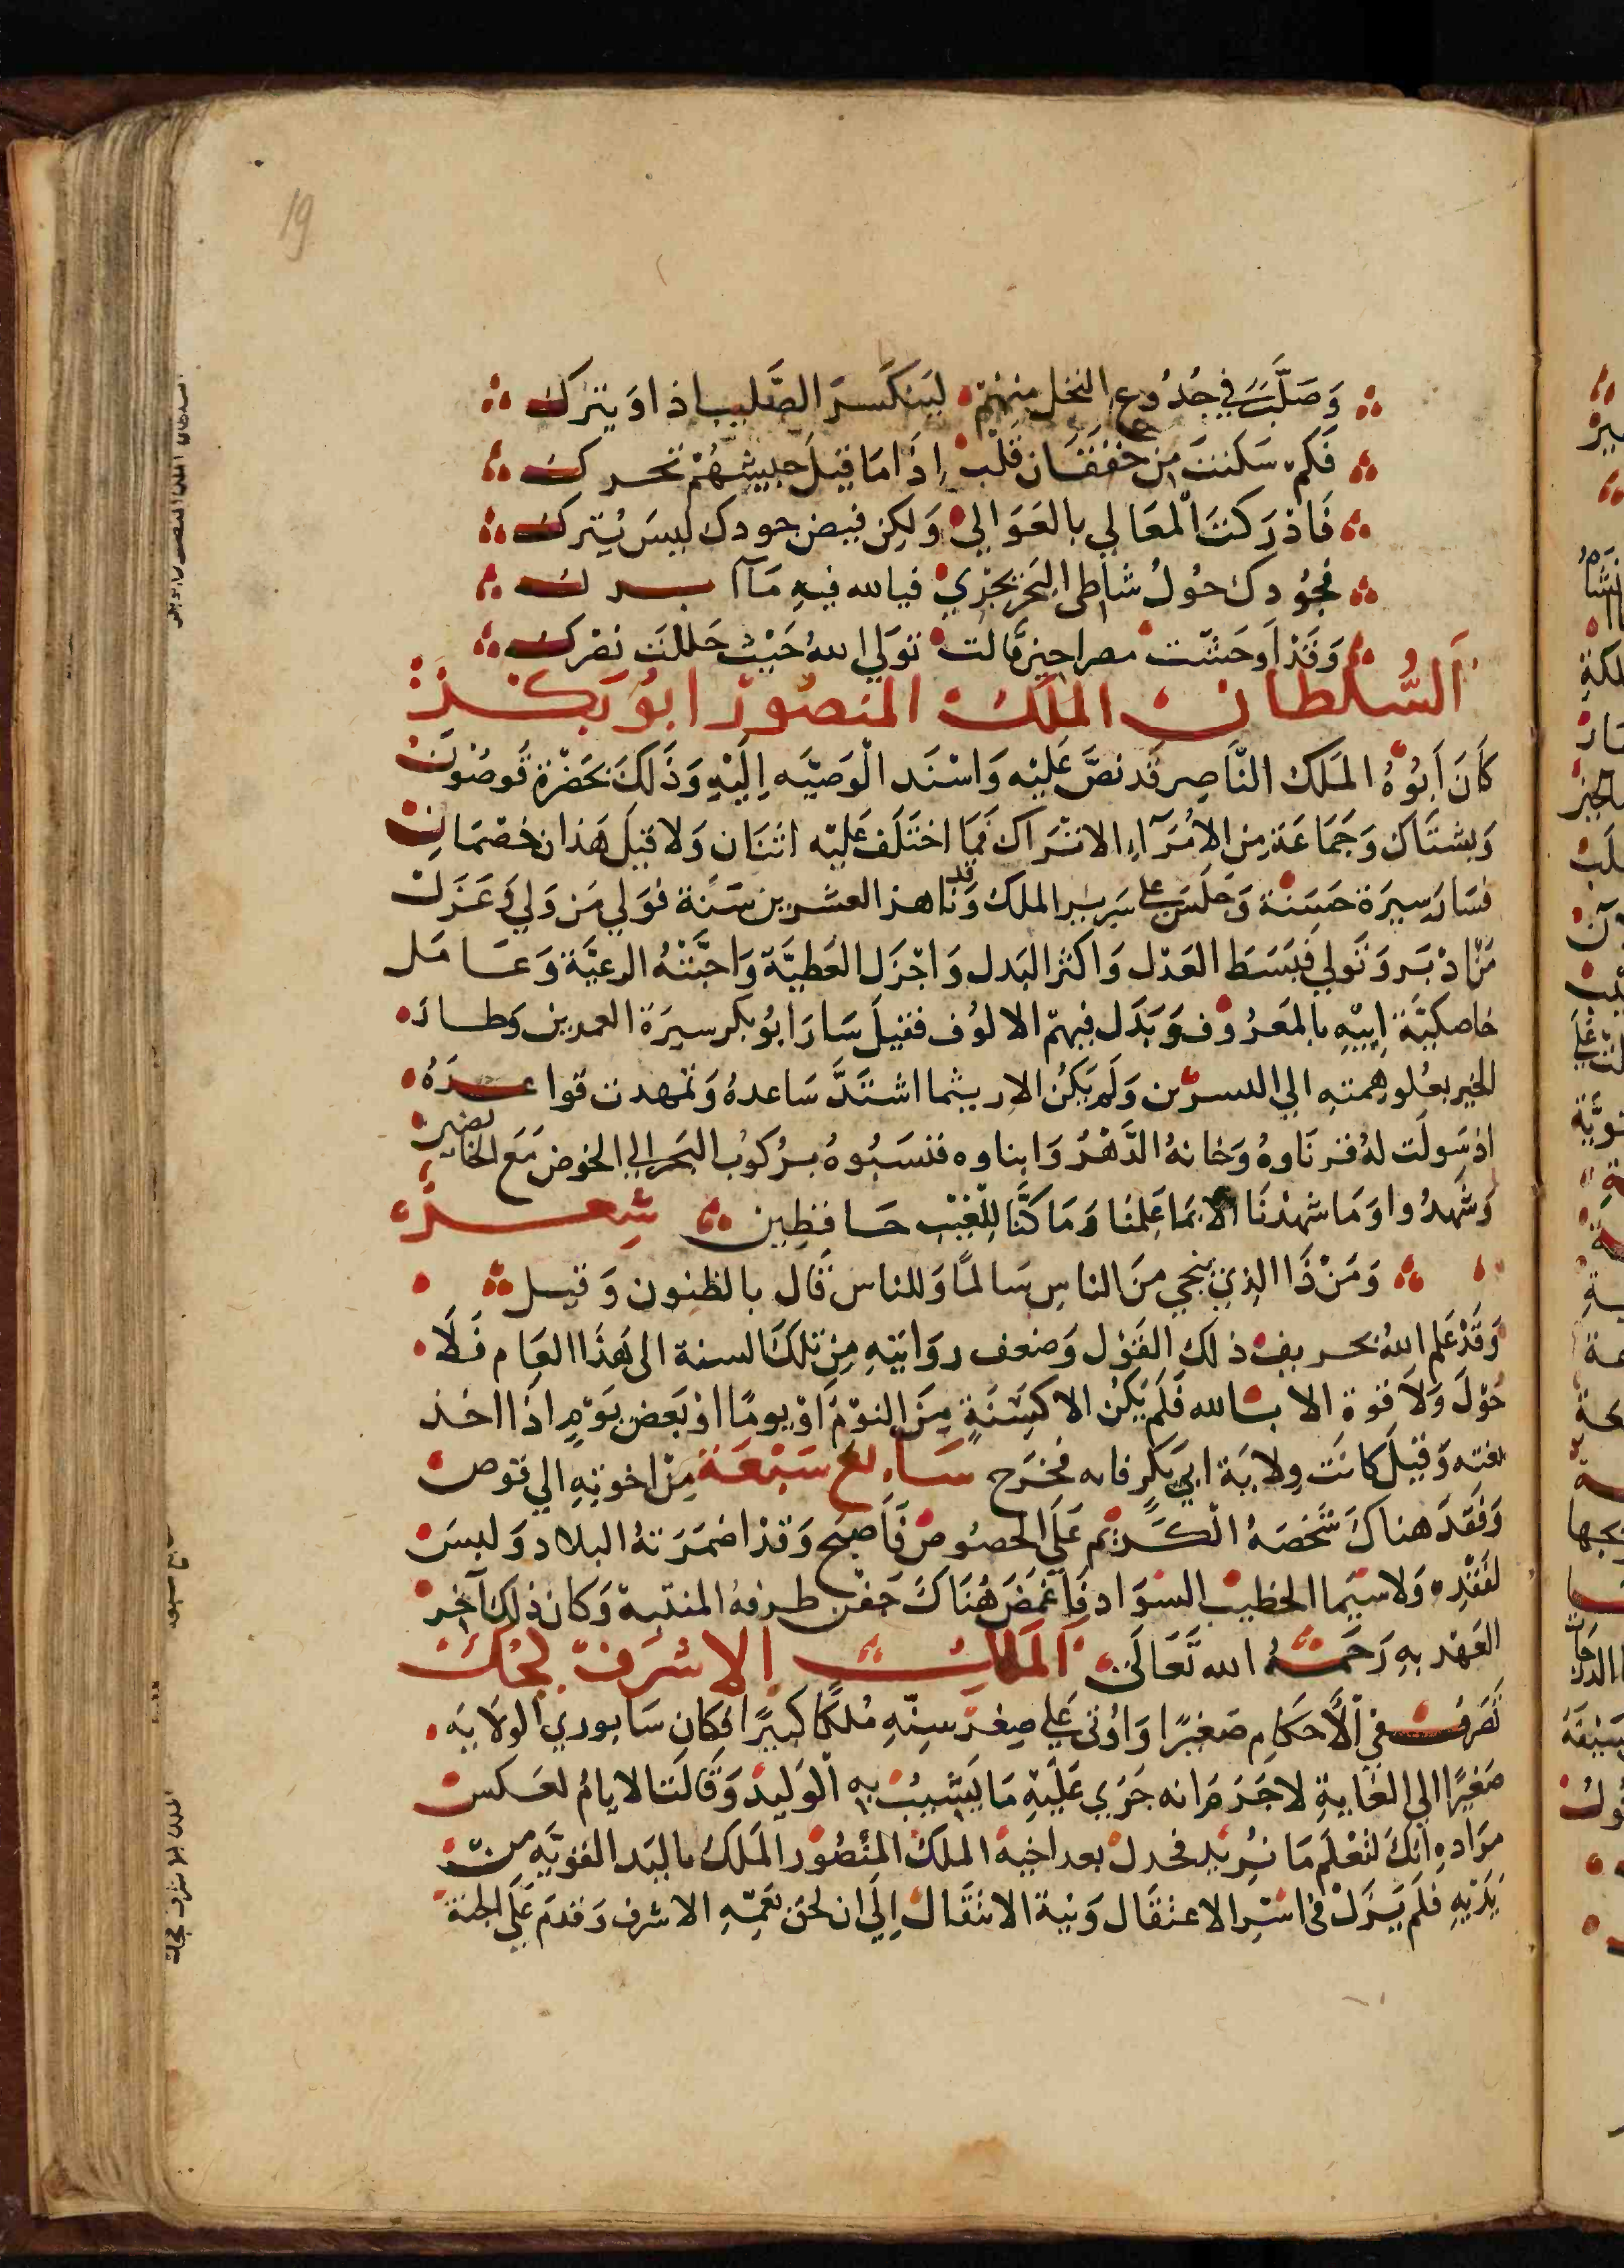 19
وَصَلَّبْتَ في جُذُوع النخل منهم لينكسرَ الصَّليب اذا ويترك
فَكم سَكنتَ من خفقان قلب اِذا مَا قيلَ جيشهُمْ تحرك
فَادْرَكتَ المعَالي بالعَوَالي وَلكن فيض جودك ليسَ يُترك
فجُودك حَوْلُ شاطي البَحر يجْري فيالله فيهِ مَا ابرك
وَقَدْ اَوحَشَت مصرا حينَ قالت تولي اللهُ حَيْث حَللت نصرك
اَلسُّلطان الملك المنصُور ابُو بَكر
كَانَ اَبُوهُ المَلك النَّاصِر قَد نصَّ عَليْه وَاسْنَد الْوَصيَّه اِلَيْهِ وَذَلكَ بحَضْرة قوصُون
وَبشتَاك وَجَمَاعَة مِن الاُمَرَآءِ الاتْرَاك فمَا اختَلَف عَليْه اثنَان وَلا قيلَ هَذان خصْمَان
فسَارَ سِيرَة حَسَنَة وَجَلسَ علي سَرير الملك وَقد نَاهز العشرين سَنَة فوَلي مَن وَلي وَعَزَل
مَنْ ادْبَر وَتَولي فبَسَط العَدْل وَاكثر البَدل وَاجْزَل العَطيَّة وَاحَبَّتْهُ الرعيَّة وَعَامَل
خاصكيَّة اَبيْهِ بالمَعرُوف وَبَذَل فيهمْ الالوُف فقيلَ سَارَ ابُو بكر سيرَة العمرين وَطار
الخير بعُلو همتهِ الي النسرَين وَلَم يَكُن الا ريثما اشتَدَّ سَاعدهُ وَتمهدت قواعدَهُ
اذ سَولَت لهُ قرنَاوهُ وَخانهُ الدَّهْرُ وَابناوه فنسَبُوهُ برُكوُب البَحر الي الخوض مَع الخائضين
وَشَهدُوا وَمَا شَهدْنَا الا بمَا عَلمنَا وَمَا كنَّا للغَيْب حَافظين شعر
وَمَنْ ذَا الذِي يَنجي منَ الناسِ سَالمًا وَللناس قَال بالظنون وَقيل
وَقَدْ عَلم اللهُ تحريف ذلك القَوْل وَضعف رِوَايَتهِ مِن تلكَ السنة الى هَذَا العَام فَلَا
حَوْلَ وَلَا قوة الا بالله فَلَم يَكُن الا كسَنَةٍ مِنَ النوْمِ اَوْ يومًا اوْ بَعض يَوْمٍ اذَا اخذ
بغته وَقيلَ كانَت وِلايَة ابي بَكرٍ فانه فخرَج سَابعَ سَبْعَة مِنْ اخوتِهِ الي قوص
وَفقدَ هناكَ شَخصَهُ الْكَريْم عَلَي الخصُوص فَاَصبَح وَقَدْ اضمَرَتهُ البلاد وَلبسَ
لفَقْدِه وَلا سيَّما الخطيب السَّوَاد فَاغْمَضَ هُنَاكَ جَفن طرفهُ المنتبهَ وَكان ذلك آخر
العَهْد بهِ رَحَمَهُ الله تَعَالَي المَلِك الاشرَف كجك
تَصَرفَ في الأحكام صَغيرًا وَاُوتي علي صِغر سِنّهِ مُلكًا كبيرًا فكان سَابوري الولَايَه
صَغيرًا الي الغَايةِ لا جَرَمَ انه جَرَي عَليْهِ مَا يَشيبُ بهِ الْوَليدَ وَقَالَت الايامُ لعكس
مرَادهِ انكَ لتَعْلَم مَا نُريْد فخدل بعد اخيهِ الملك المنْصُور المَلك باليَد القَويَّه من
يَدَيْهِ فلَم يَزَلْ في اسْرِ الاعتقَال وَنيةِ الانتقَال اِلَي ان لحقَ بعَمّهِ الاشرف وَقدمَ عَلَي الجنة